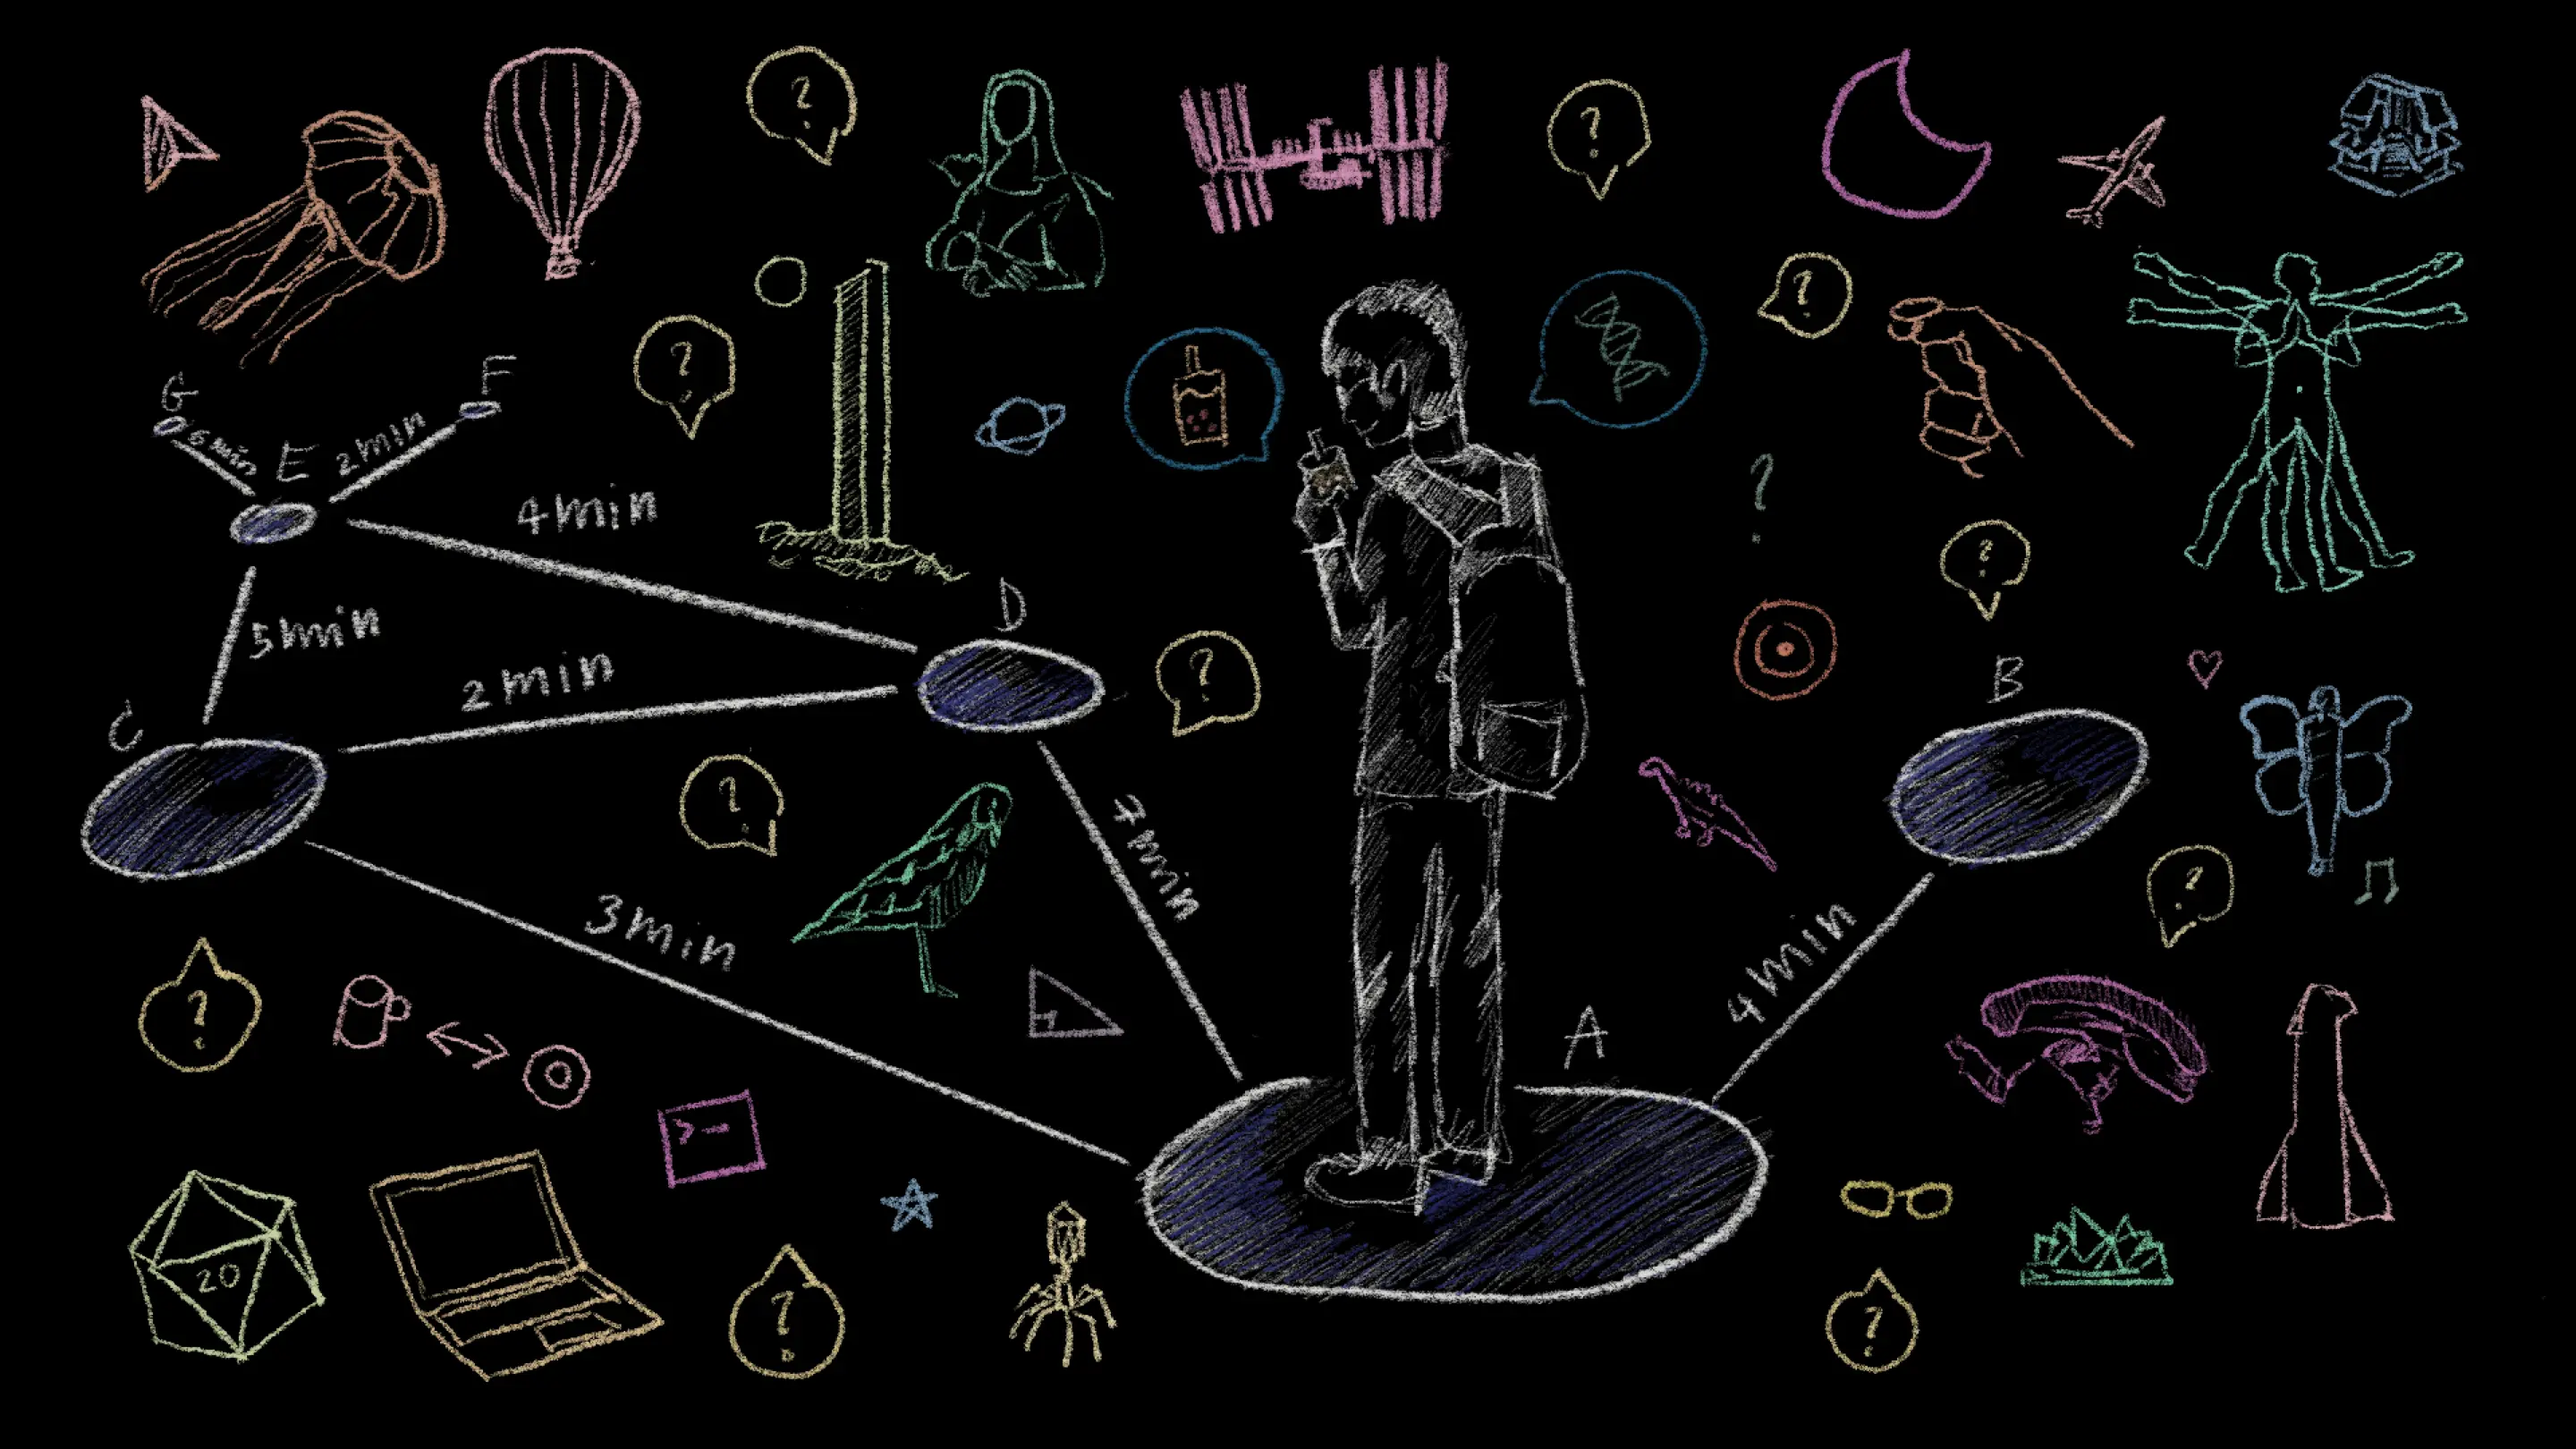 ?
?
?
?
?
G
F
6 min
E
2 min
4 min
?
?
D
5 min
2 min
?
B
C
?
7 min
?
3 min
4 min
?
A
>-
20
?
?